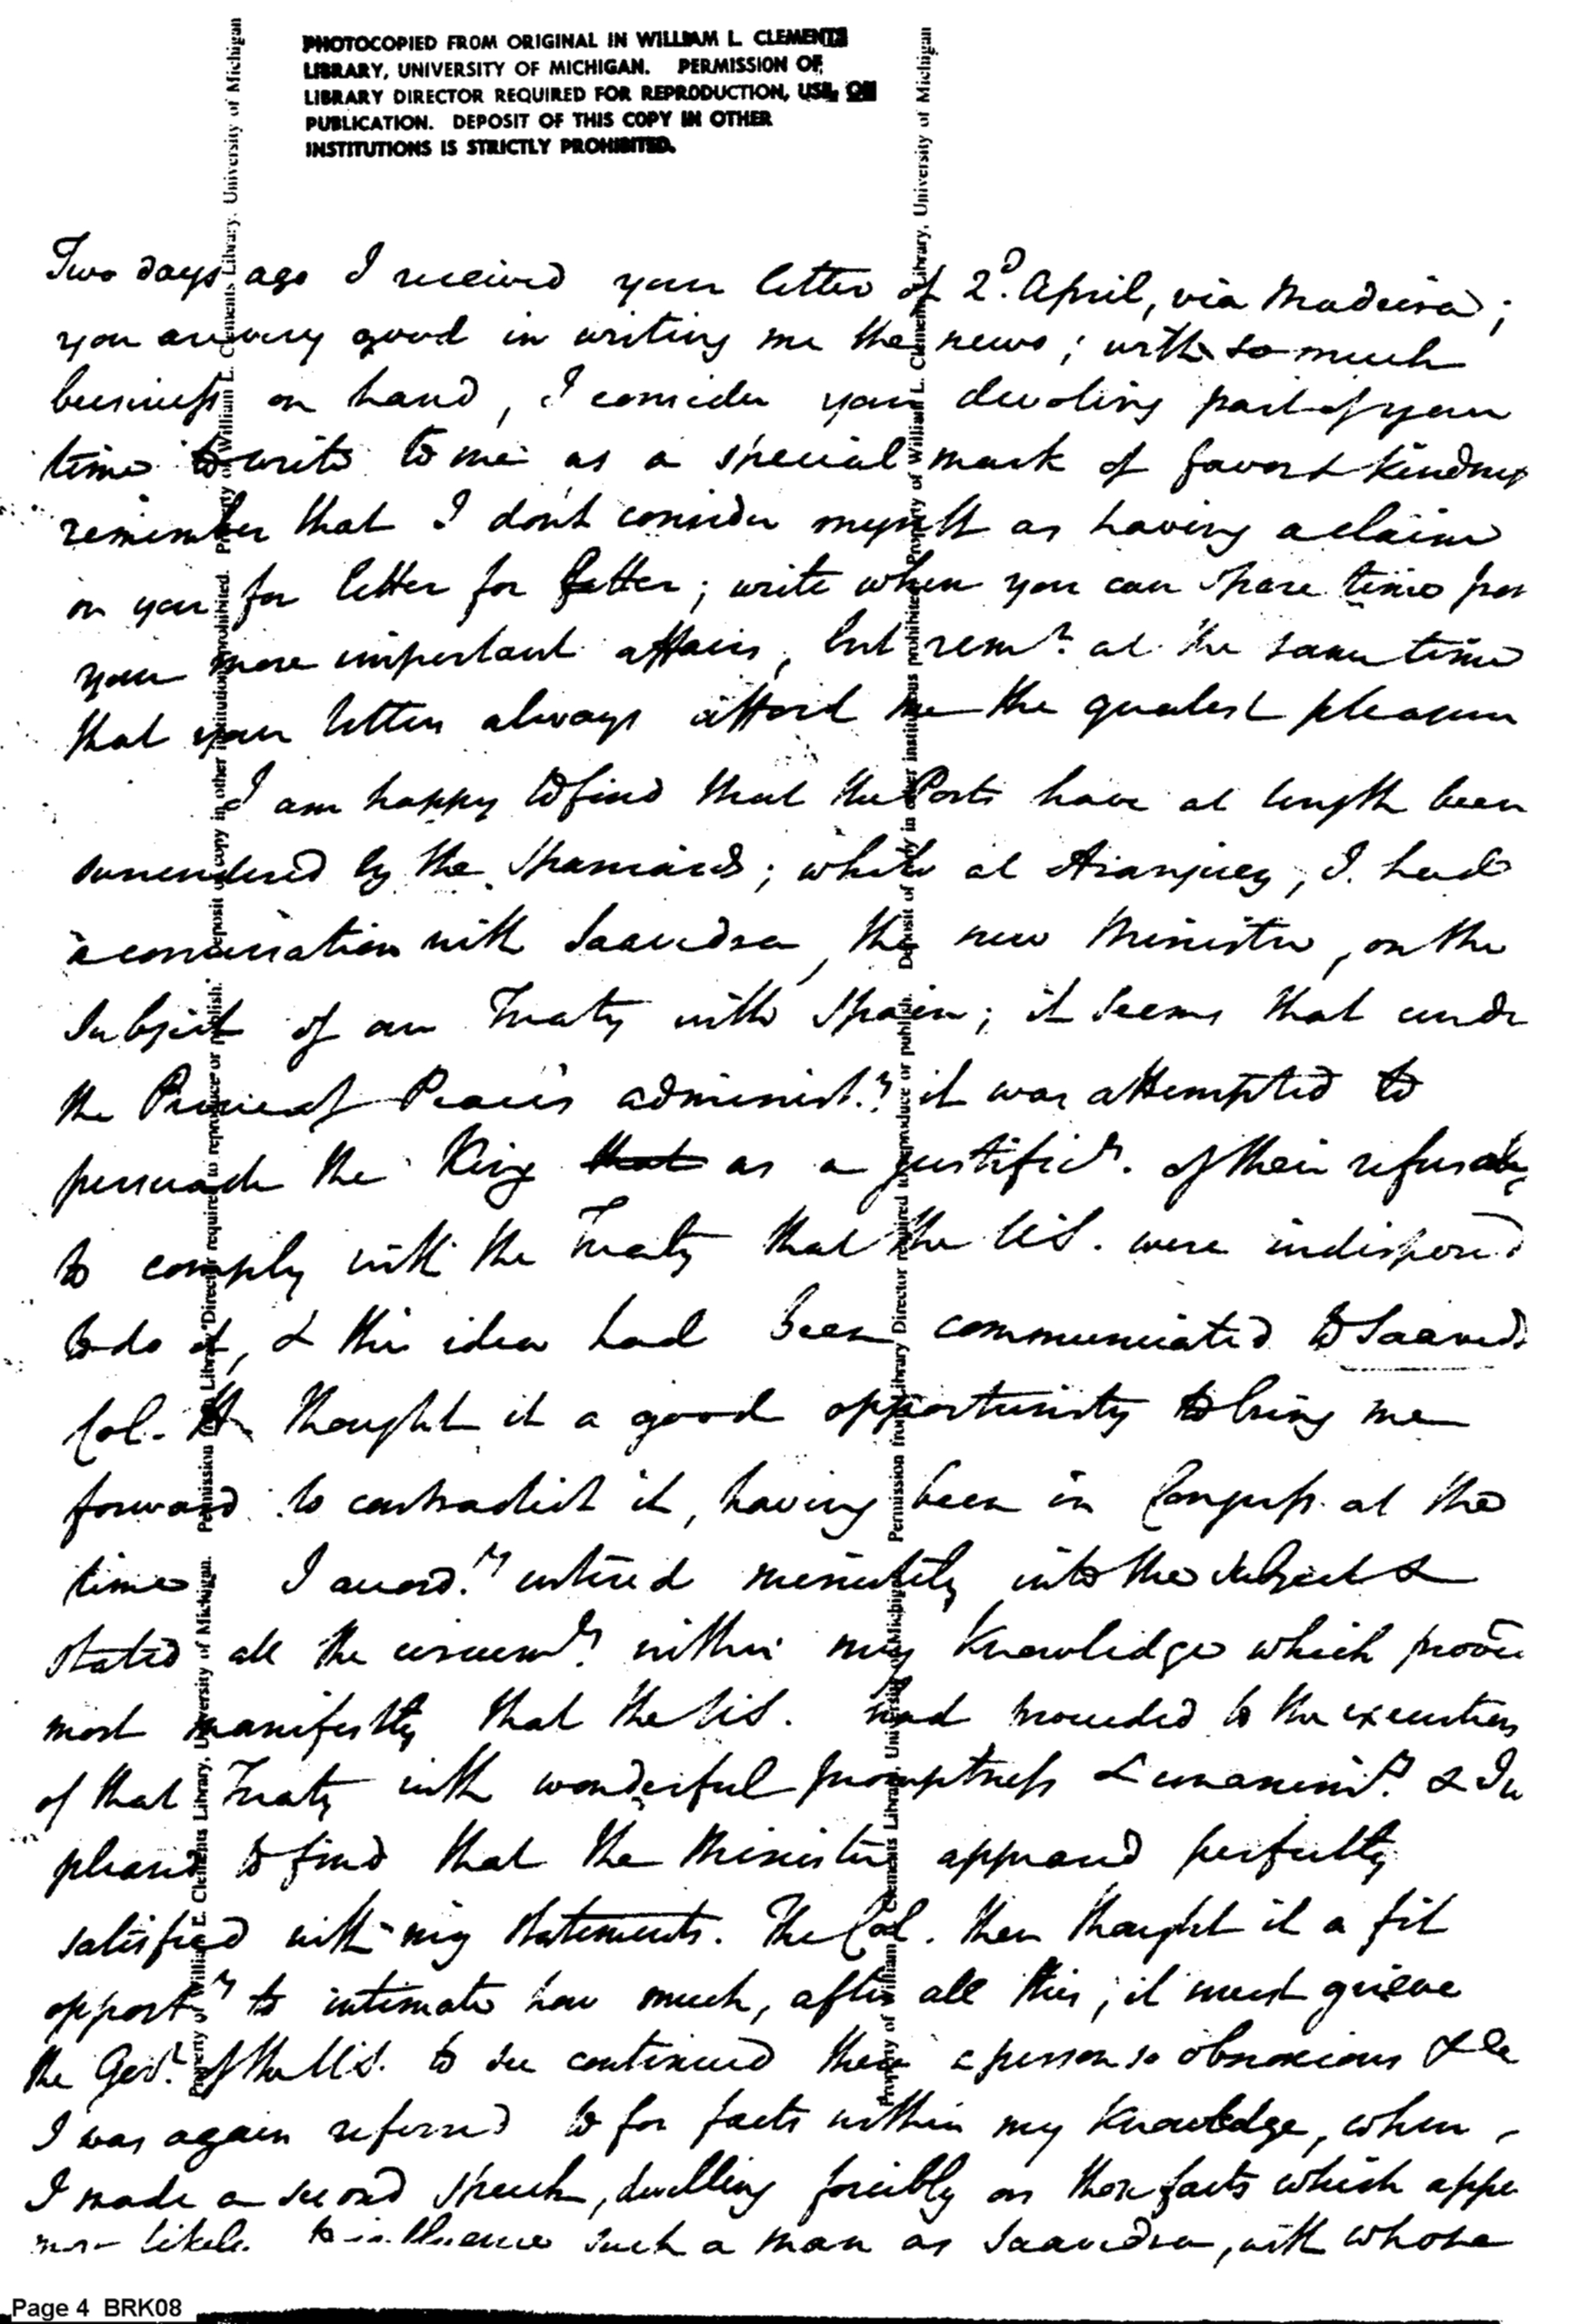 PHOTOCOPIED FROM ORIGINAL IN WILLIAM L. CLEMENTS
LIBRARY, UNIVERSITY OF MICHIGAN. PERMISSION OF
LIBRARY DIRECTOR REQUIRED FOR REPRODUCTION, USE, OR
PUBLICATION. DEPOSIT OF THIS COPY IN OTHER
INSTITUTIONS IS STRICTLY PROHIBITED.
Two days ago I received your letter of 2d. April, via Madeira;
you are very good in writing me the news; with so much
business on hand, I consider your devoting part of your
time to write to me as a special mark of favor & kindness
remember that I dont consider myself as having a claim
on you for letter for letter; write when you can spare time from
your more important affairs, but remr. at the same time
that your letters always afford me the greatest pleasure
I am happy to find that the Posts have at length been
surrendered by the Spaniards; while at Aranjuez, I had
a conversation with Saavedra, the new Minister, on the
subject of our Treaty with Spain; it seems that under
the Prince of Peace's administn. it was attempted to
persuade the King that as a justificn. of their refusal
to comply with the Treaty that the U.S. were indisposed
to do it, & this idea had been communicated to Saaved
Col. H. thought it a good opportunity to bring me
forward to contradict it, having been in Congress at the
time I accordy. entered minutely into the subject &
stated all the circumss. within my Knowledge which prove
most manifestly that the U.S. had proceeded to the execution
of that Treaty with wonderful promptness & unanimy. & I w
pleased to find that the Minister appeared perfectly
satisfied with my statements. The Col. then thought it a fit
opporty. to intimate how much, after all this, it must grieve
the Govt. of the U.S. to see continued there a person so obnoxious &c
I was again referred to for facts within my Knowledge, when
I made a second speech, dwelling forcibly on those facts which appe
most likely to influence such a man as Saavedra, with whose
Property of William L. Clements Library, University of Michigan. Permission from Library Director required to reproduce or publish. Deposit of copy in other institutions prohibited. Property of William L. Clements Library, University of Michigan
Property of William L. Clements Library, University of Michigan. Permission from Library Director required to reproduce or publish. Deposit of copy in other institutions prohibited. Property of William L. Clements Library, University of Michigan
Page 4 BRK08